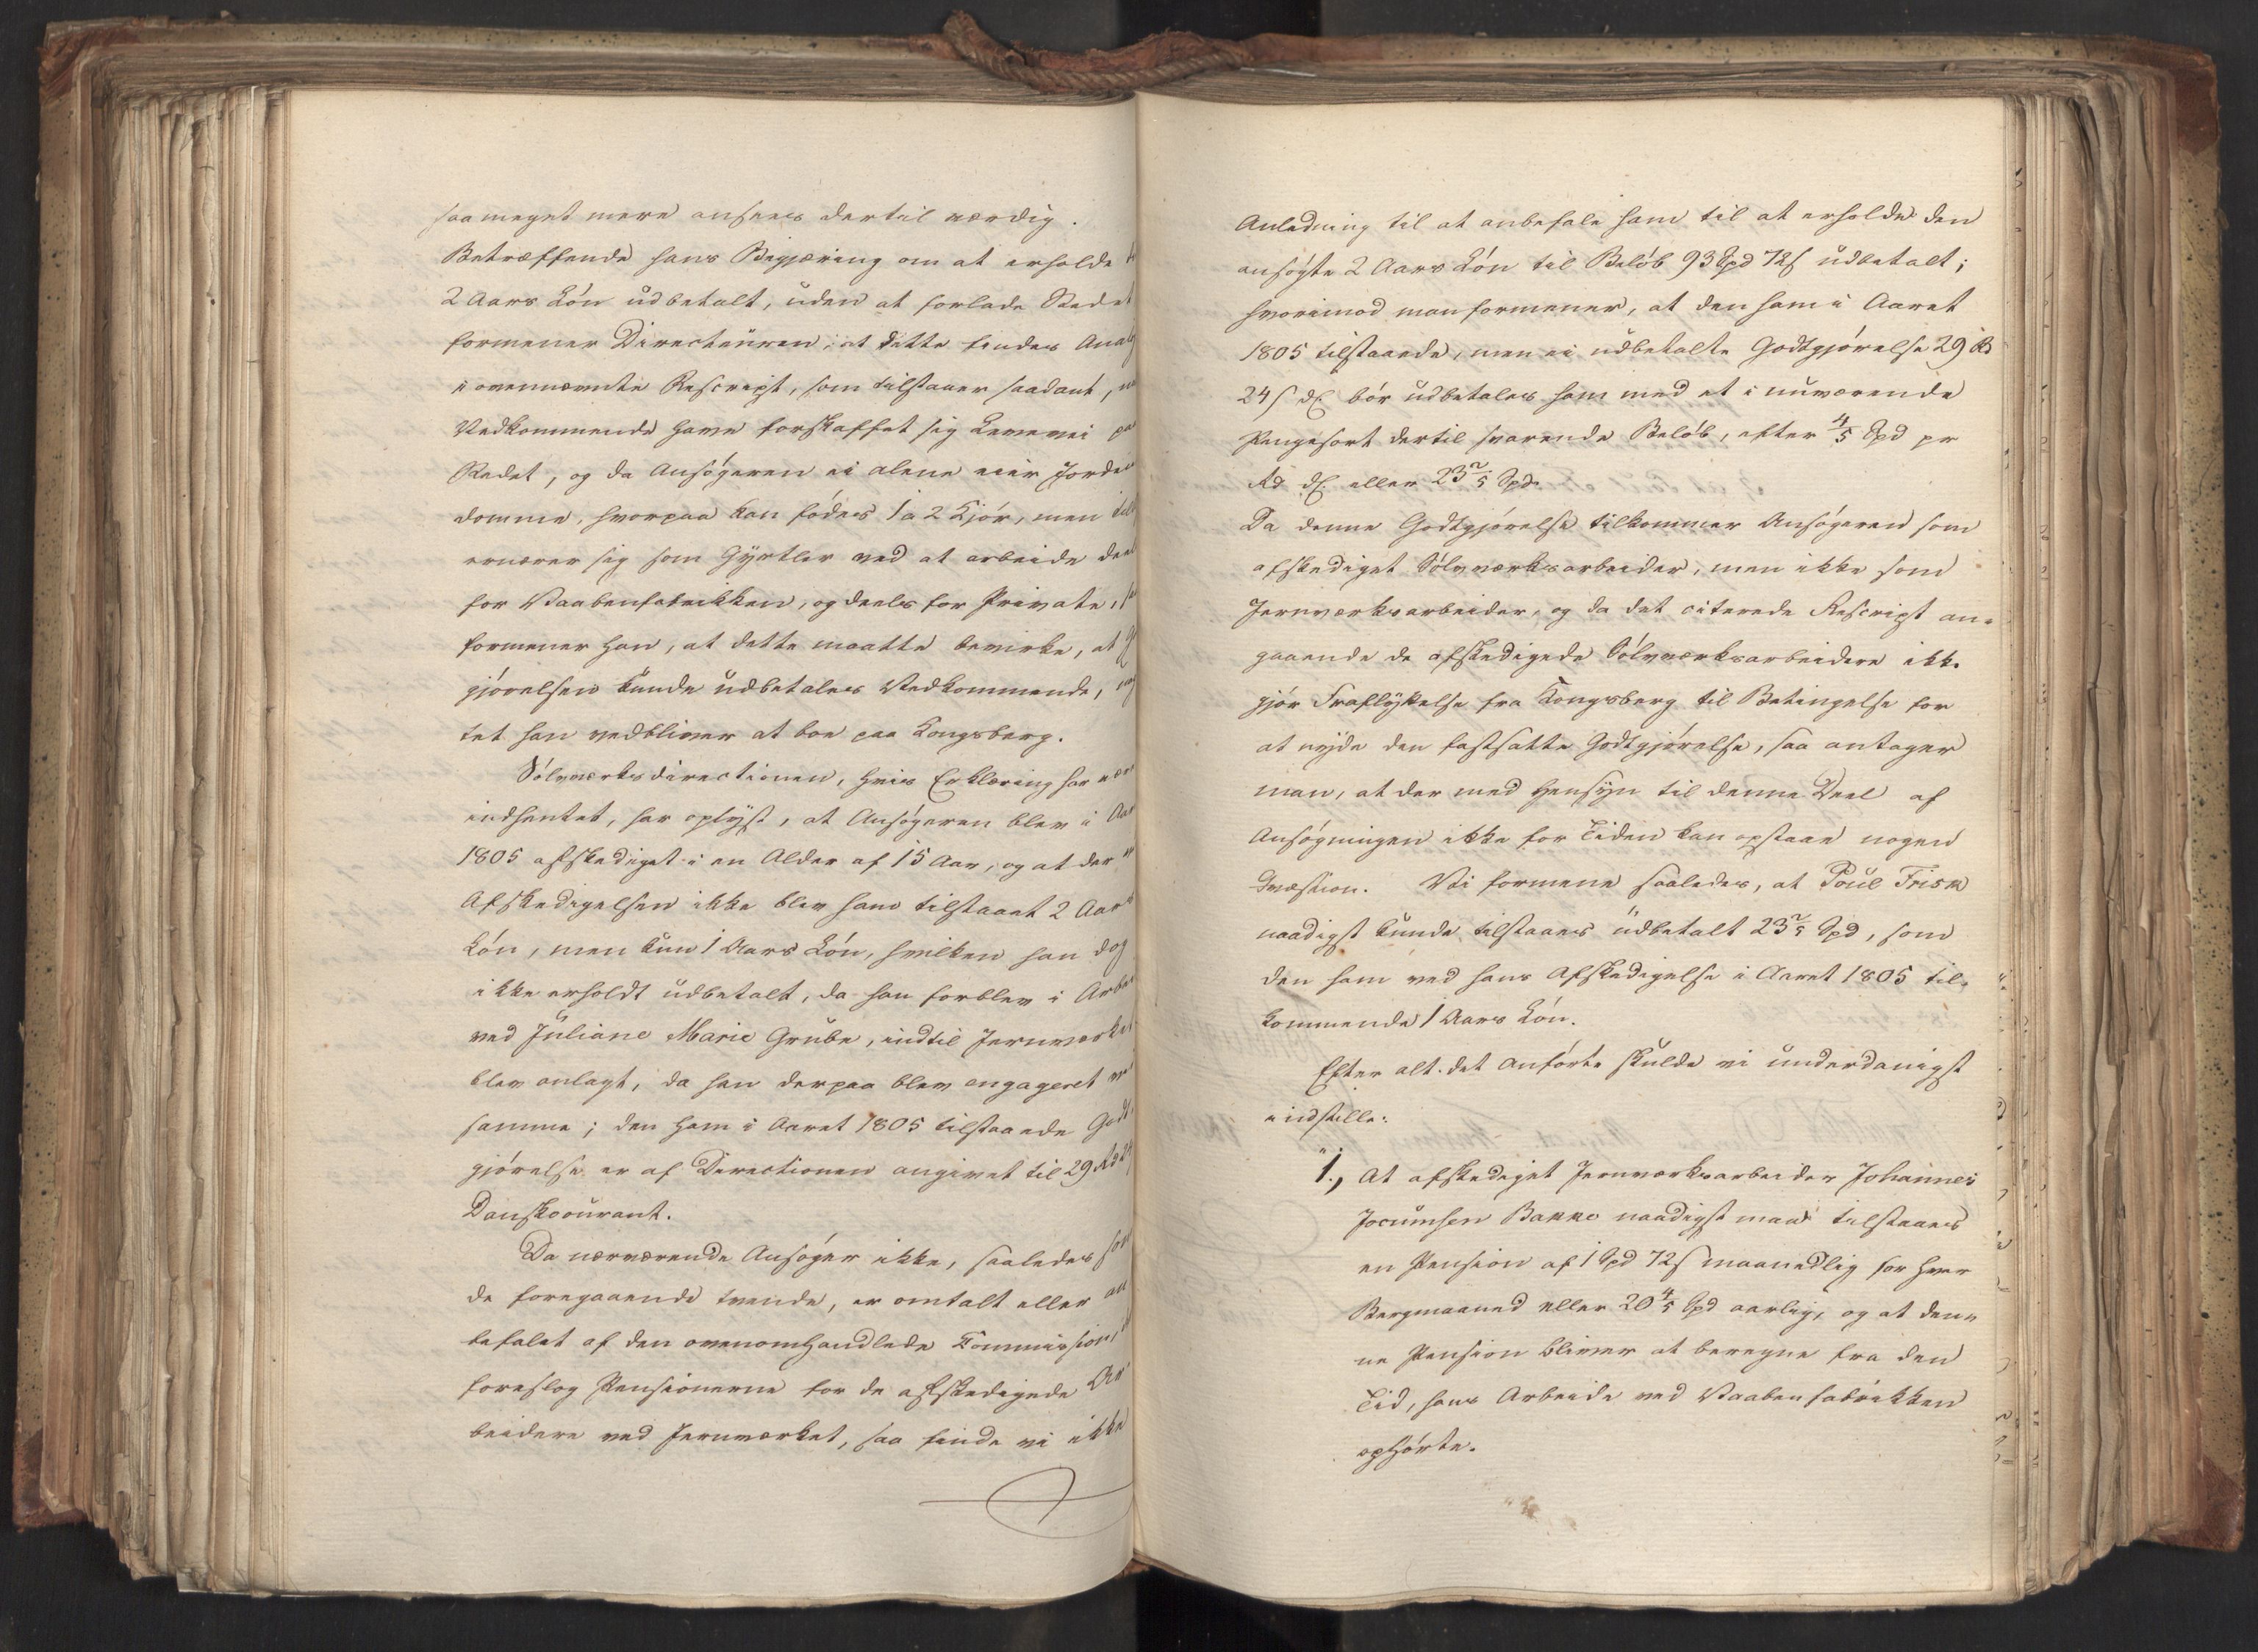 saa meget mere ansees dertil værdig.
Betræffende hans Begjæring om at erholde
2 Aars Løn udbetalt, uden at forlade Stedet
formener Directeuren, at dette findes Analog
i ovennævnte Rescript, som tilstaaer saadant, na
Vedkommende have forskaffet sig Levevei paa
Stedet, og da Ansøgeren ei alene eier Jorden
domme, hvorpaa kan fødes 1 a 2 Kjør, men till
ernærer sig som Gjørtler ved at arbeide deel
for Vaabenfabrikken, og deels for Private, sa
formener han, at dette maatte bevirke, at G
gjørelsen kunde udbetales Vedkommende, uag
tet han vedbliver at boe paa Kongsberg.
Sølvværksdirectionen, hvis Erklæring har være
indhentet, har oplyst, at Ansøgeren blev i Aar
1805 afskediget i en Alder af 15 Aar, og at der
Afskedigelsen ikke blev ham tilstaaet 2 Aars
Løn, men kun 1 Aars Løn, hvilken han dog
ikke erholdt udbetalt, da han forblev i Arbei
ved Juliane Marie Grube, indtil Jernværket
blev anlagt, da han derpaa blev engageret ved
samme; den ham i Aaret 1805 tilstaaede Godt
gjørelse er af Directionen angivet til 29 Rd 24
Danskcourant.
Da nærværende Ansøger ikke, saaledes som
de foregaaende tvende, er omtalt eller an
befalet af den ovenomhandlede Commission,
foreslog Pensionerne for de afskedigede Ar
beidere ved Jernværket, saa finde vi ikke
Anledning til at anbefale ham til at erholde den
ansøgte 2 Aars Løn til Beløb 93 Spd 72 s udbetalt;
hvorimod man formener, at den ham i Aaret
1805 tilstaaede, men ei udbetalte Godtgjørelse 29 Rd
24 s dC bør udbetales ham med et i nuværende
Pengesort dertil svarende Beløb, efter 4/5 Spd pr
Rd dC eller 23 2/5 Spd.
Da denne Godtgjørelse tilkommer Ansøgeren som
afskediget Sølvværksarbeider, men ikke som
Jernværksarbeider, og da det citerede Rescript an-
gaaende de afskedigede Sølvværksarbeidere ikke
gjør Fraflyttelse fra Kongsberg til Betingelse for
at nyde den fastsatte Godtgjørelse, saa antager
man, at der med Hensyn til denne Deel af
Ansøgningen ikke for Tiden kan opstaae nogen
Qvæstion. Vi formene saaledes, at Poul Frisk
naadigst kunde tilstaaes udbetalt 23 2/5 Spd, som
den ham ved hans Afskedigelse i Aaret 1805 til-
kommende 1 Aars Løn.
Efter alt det Anførte skulde vi underdanigst
indstille:
1., At afskediget Jernværksarbeider Johannes
Jocumsen Bakke naadigst maae tilstaaes
en Pension af 1 Spd 72 s maanedlig for hver
Bergmaaned eller 20 4/5 Spd aarlig, og at den-
ne Pension bliver at beregne fra den
Tid, hans Arbeide ved Vaabenfabrikken
ophørte.